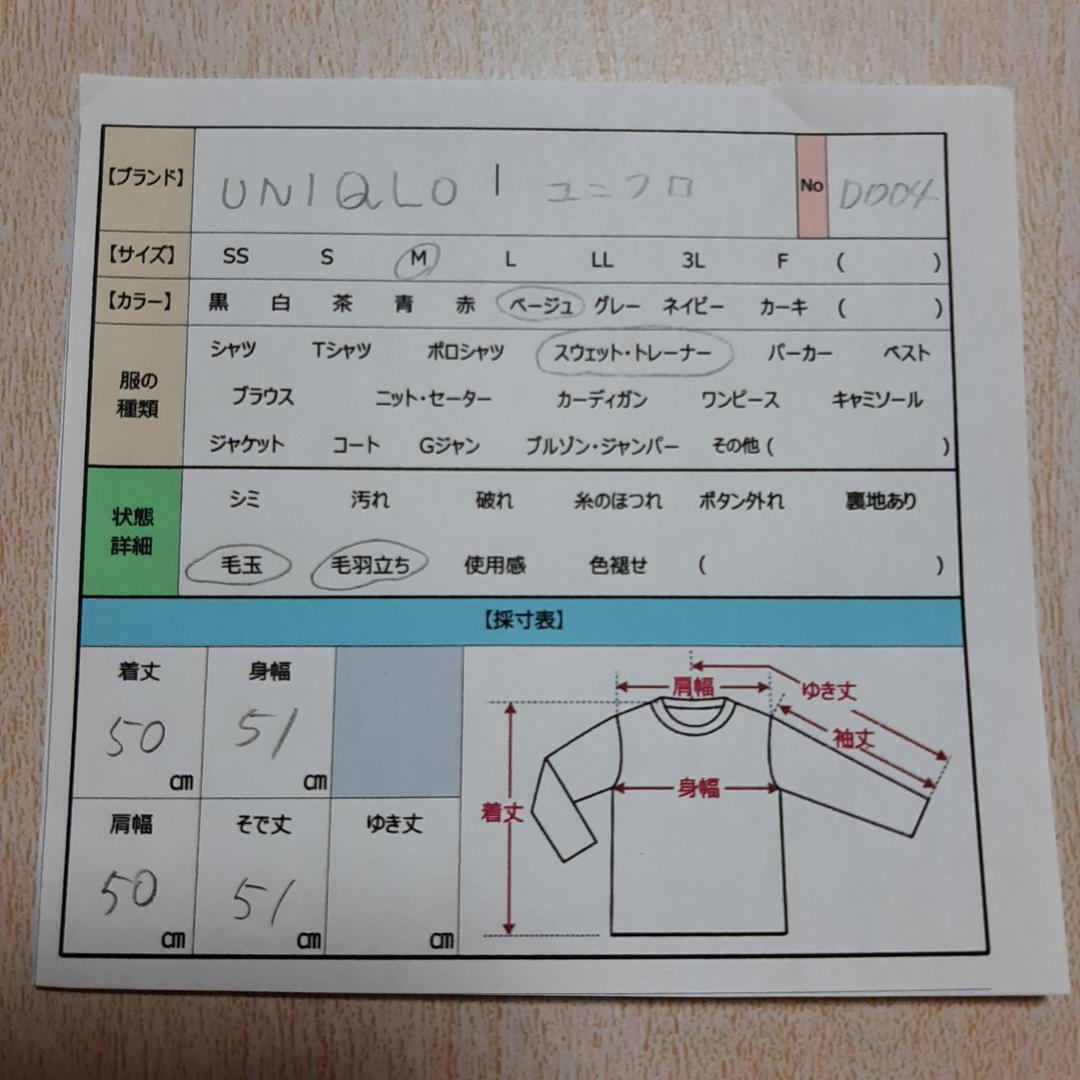 【ブランド】 UNIQLO | ユニクロ No D004
【サイズ】 SS S M L LL 3L F ( )
【カラー】 黒 白 茶 青 赤 ベージュ グレー ネイビー カーキ ( )
服の種類
シャツ Tシャツ ポロシャツ スウェット・トレーナー パーカー ベスト
ブラウス ニット・セーター カーディガン ワンピース キャミソール
ジャケット コート Gジャン ブルゾン・ジャンパー その他 ( )
状態詳細
シミ 汚れ 破れ 糸のほつれ ボタン外れ 裏地あり
毛玉 毛羽立ち 使用感 色褪せ ( )
【採寸表】
着丈 身幅
50 cm 51 cm
肩幅 そで丈 ゆき丈
50 cm 51 cm cm
肩幅 ゆき丈
袖丈
身幅
着丈